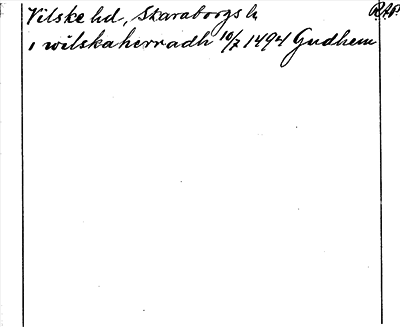 Vilske hd, Skaraborgs l. RAP.
i wilskaherradh 10/7 1494 Gudhem